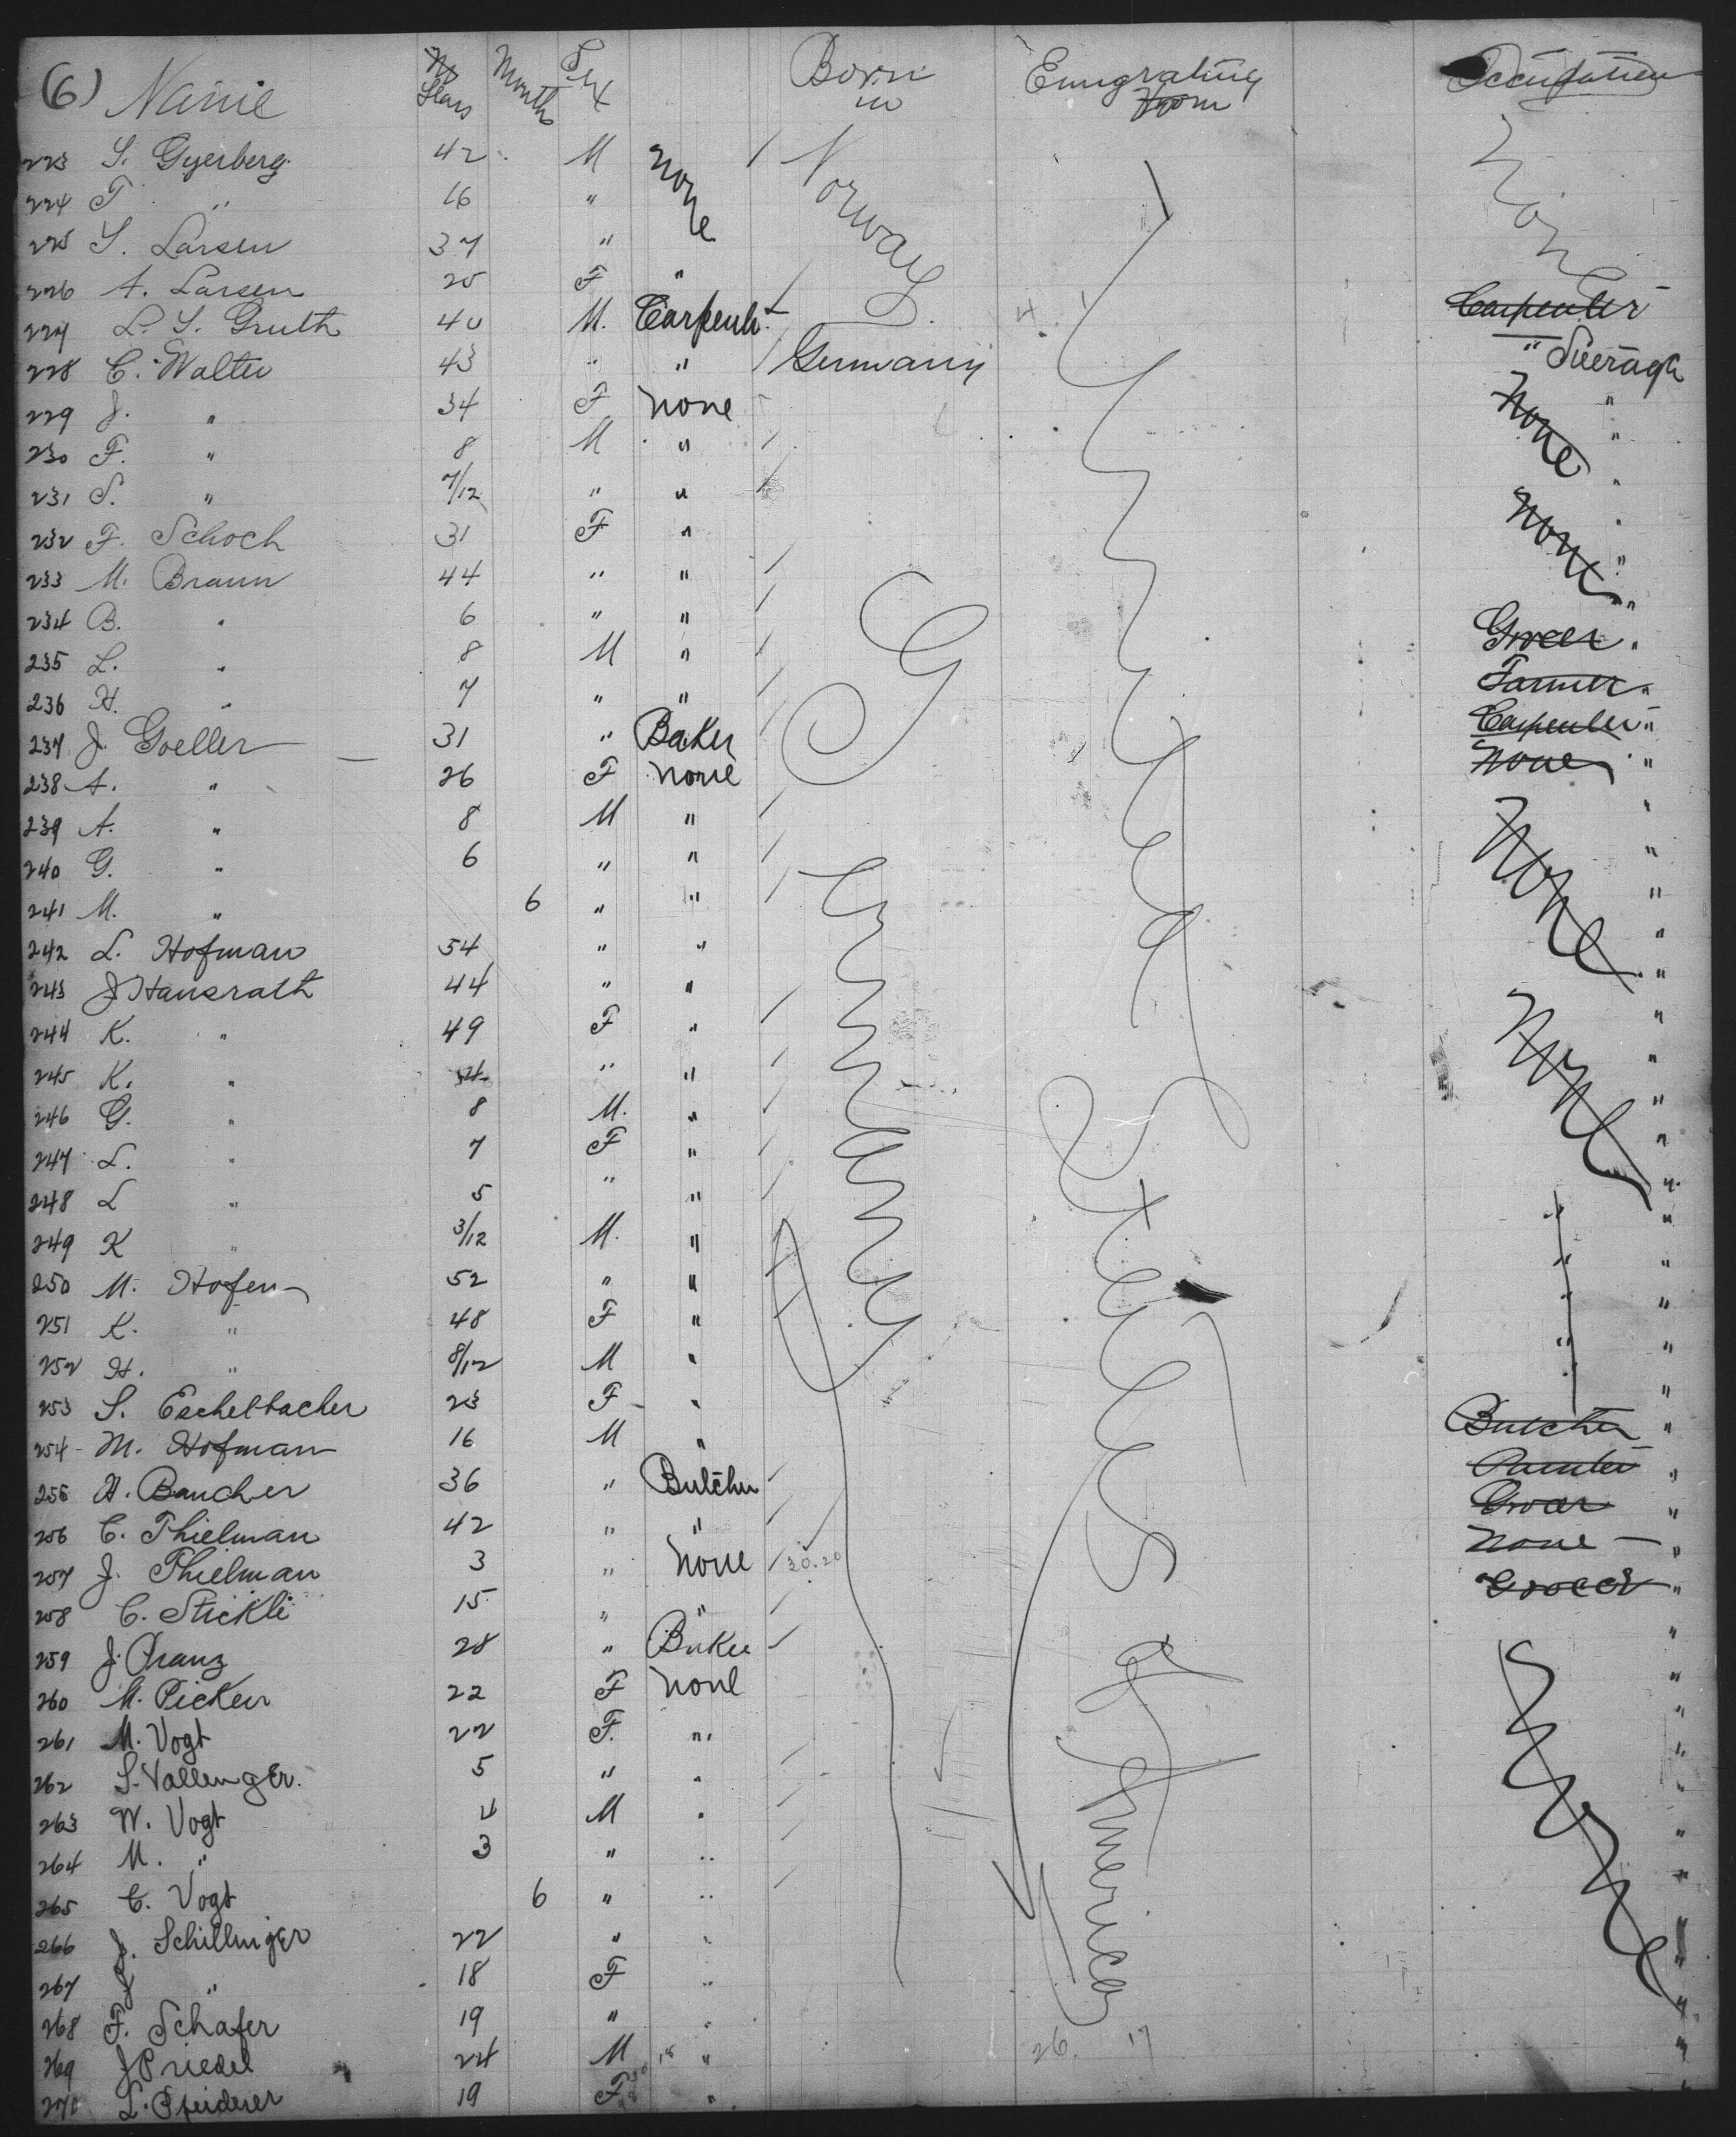 (6) Name Years Months Sex Born in Emigrating from Occupation
223 S. Gyerberg 42 M None / Norway None
224 T " 16 "
225 S. Larsen 37 "
226 A. Larsen 25 F "
227 L. S. Gruth 40 M. Carpent. / Carpenter
228 C. Walter 43 " " / Germany " Steerage
229 J. " 34 F None None "
230 F. " 8 M " / "
231 S. " 7/12 " " / "
232 F. Schoch 31 F " None "
233 M. Braun 44 " " / "
234 B. " 6 " " / "
235 L. " 8 M " / Grocer "
236 H. " 7 " " / Farmer "
237 J. Goeller 31 " Baker / Carpenter "
238 A. " 26 F None None "
239 A. " 8 M " / None "
240 G. " 6 " " / "
241 M. " 6 " " / "
242 L. Hofman 54 " " "
243 J Hausrath 44 " " "
244 K. " 49 F " / None "
245 K. " " " / "
246 G. " 8 M. " / "
247 L. " 7 F " / "
248 L " 5 " " / "
249 K " 3/12 M. " / " "
250 M. Hofen 52 " " / " "
251 K. " 48 F " / " "
252 H. " 8/12 M " " "
253 S. Eschelbacher 23 F " "
254 M. Hofman 16 M " Butcher "
255 H. Baucher 36 " Butcher / Painter "
256 C. Thielman 42 " " / Grocer "
257 J. Thielman 3 " None / 30.20 None "
258 C. Stickli 15 " " / Grocer "
259 J. Franz 28 " Baker / "
260 M. Picken 22 F None None "
261 M. Vogt 22 F. " "
262 S. Vallenger. 5 " " / "
263 W. Vogt 4 M " / "
264 M. " 3 " " / "
265 C. Vogt 6 " " /
266 J. Schillinger 22 " " "
267 J " 18 F " "
268 F. Schafer 19 " " "
269 J Priedel 24 M " "
270 L. Pfeiderer 19 F "
Germany
United States of America
26. 17